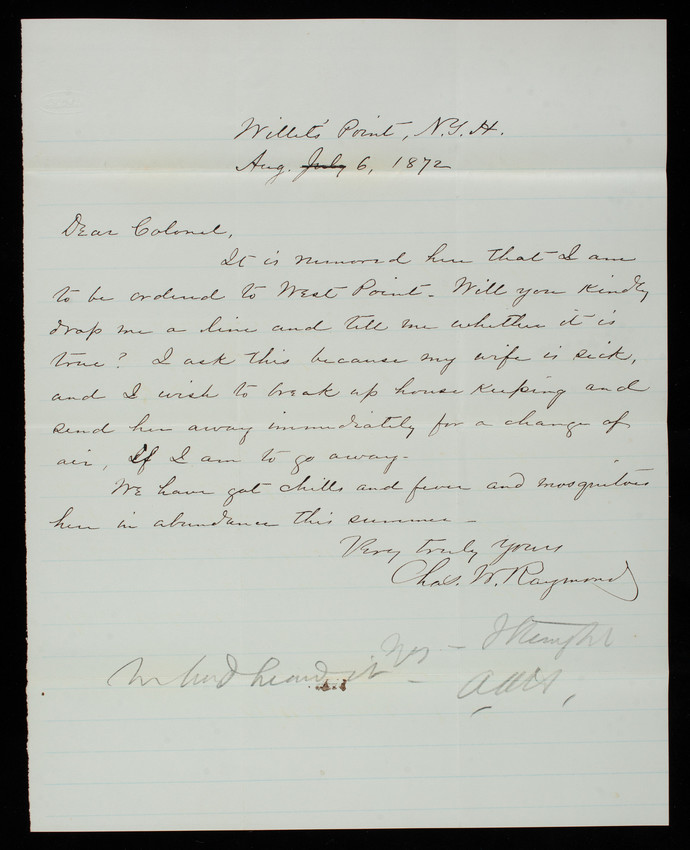 Willet's Point, N.Y.H.
Aug. July 6, 1872
Dear Colonel,
It is rumored here that I am
to be ordered to West Point. Will you kindly
drop me a line and tell me whether it is
true? I ask this because my wife is sick,
and I wish to break up house keeping and
send her away immediately for a change of
air, If I am to go away.
We have got chills and fever and mosquitoes
here in abundance this summer.
Very truly yours
Chas. W. Raymond
heard it